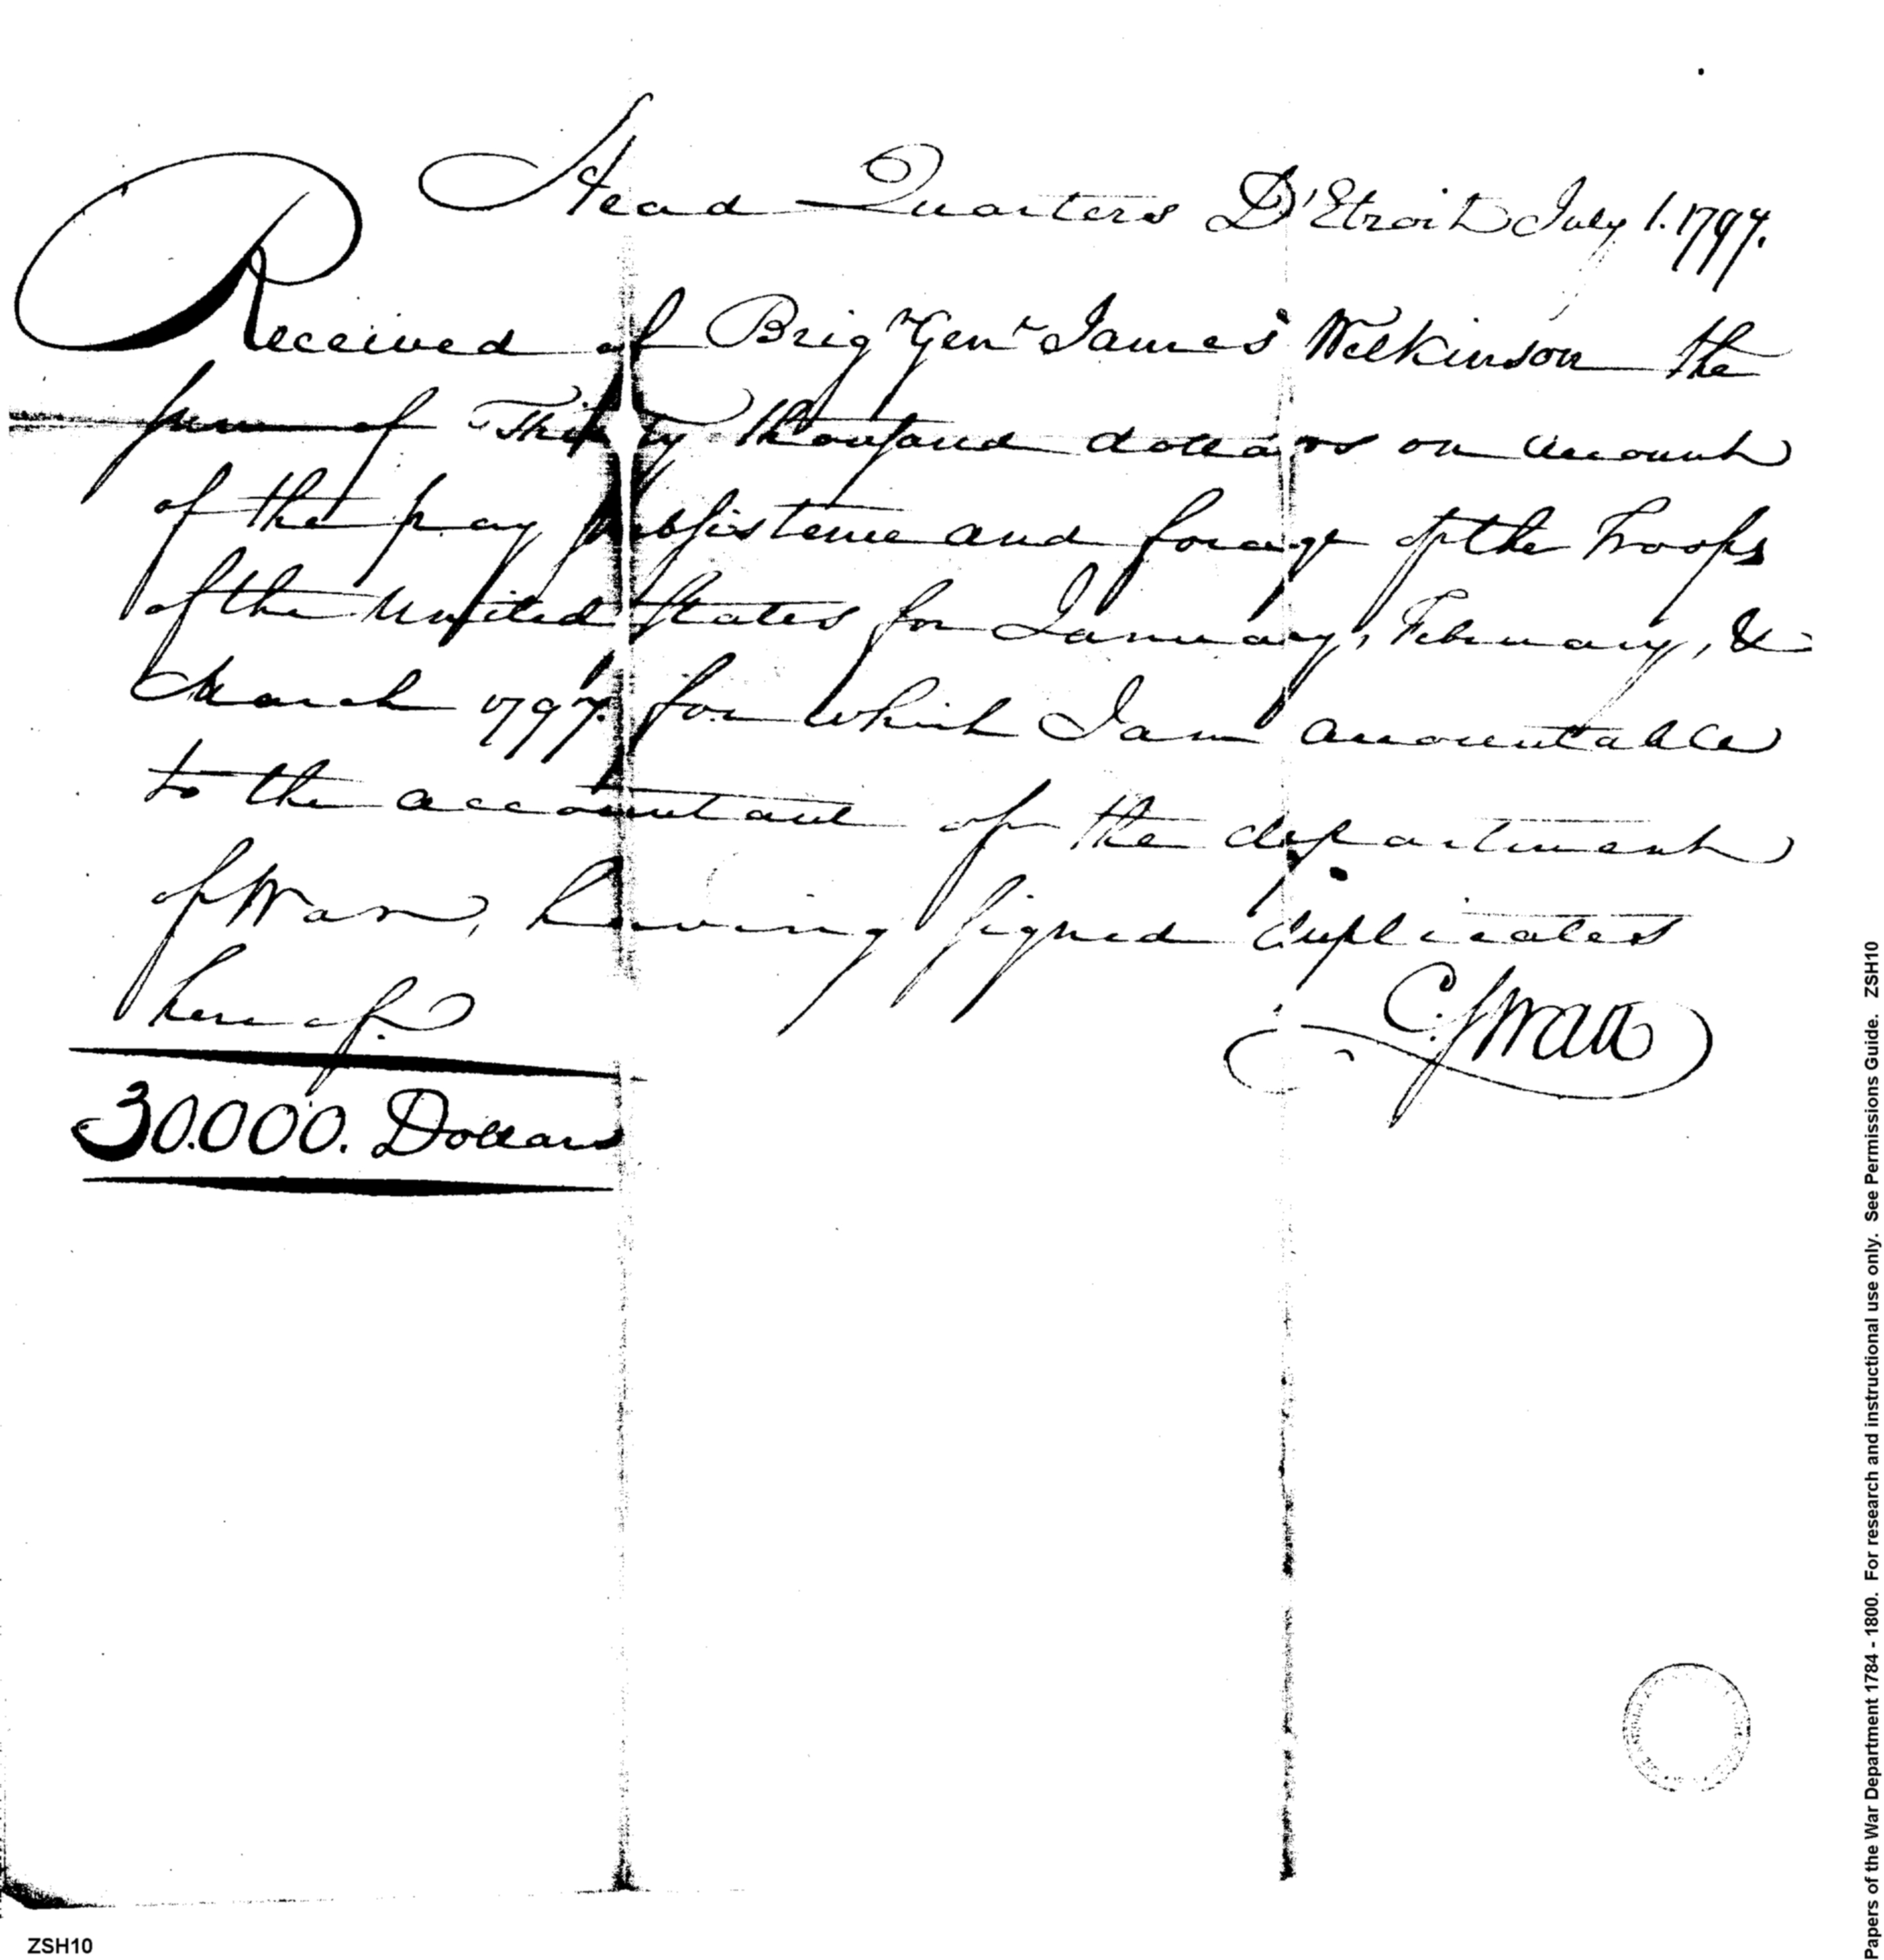 Head Quarters D'Etroit July 1. 1797.
Received of Brigr Genl James Wilkinson the
sum of Thirty thousand dollars on account
of the pay subsistence and forage of the Troops
of the United States for January, February, &
March 1797. for which I am accountable
to the accountant of the department
of War, having signed duplicates
hereof.
C. Swan
30.000. Dollars
ZSH10
Papers of the War Department 1784 - 1800. For research and instructional use only. See Permissions Guide. ZSH10